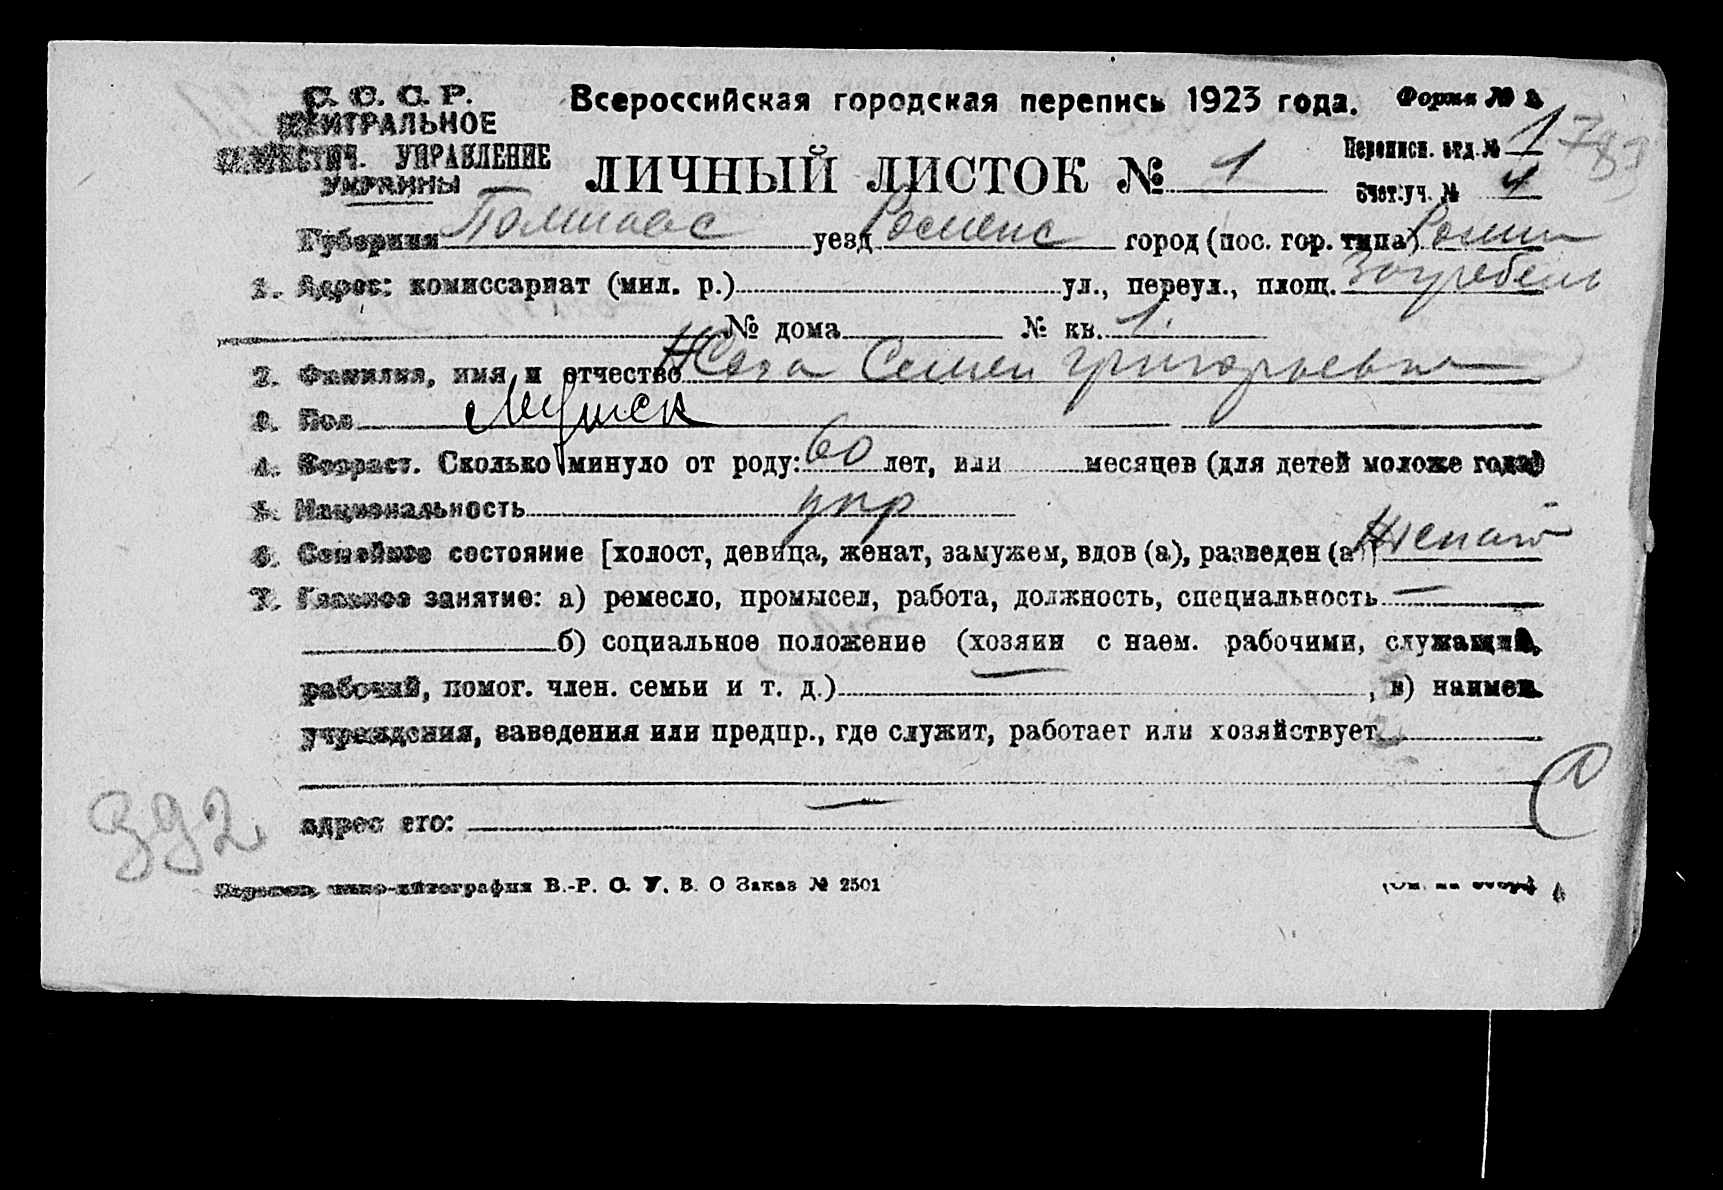 С. С. С. Р.
ЦЕНТРАЛЬНОЕ
СТАТИСТИЧ. УПРАВЛЕНИЕ
УКРАИНЫ
Всероссийская городская перепись 1923 года.
Форма № 783
ЛИЧНЫЙ ЛИСТОК № 1
Переписн. отд. № 1
Счет. уч. № 4
Губерния Полтавс уезд Роменс город (пос. гор. типа) Ромны
1. Адрес: комиссариат (мил. р.) ул., переул., площ. Загребель
№ дома № кв. 1.
2. Фамилия, имя и отчество Семен Григорьевич
3. Пол Мужск
4. Возраст. Сколько минуло от роду: 60 лет, или месяцев (для детей моложе года)
5. Национальность укр
6. Семейное состояние [холост, девица, женат, замужем, вдов (а), разведен (а)] Женат
7. Главное занятие: а) ремесло, промысел, работа, должность, специальность —
б) социальное положение (хозяин с наем. рабочими, служащий,
рабочий, помог. член. семьи и т. д.) , в) наимен.
учреждения, заведения или предпр., где служит, работает или хозяйствует
адрес его:
392
типо-литография В.-Р. С. У. В. О Заказ № 2501